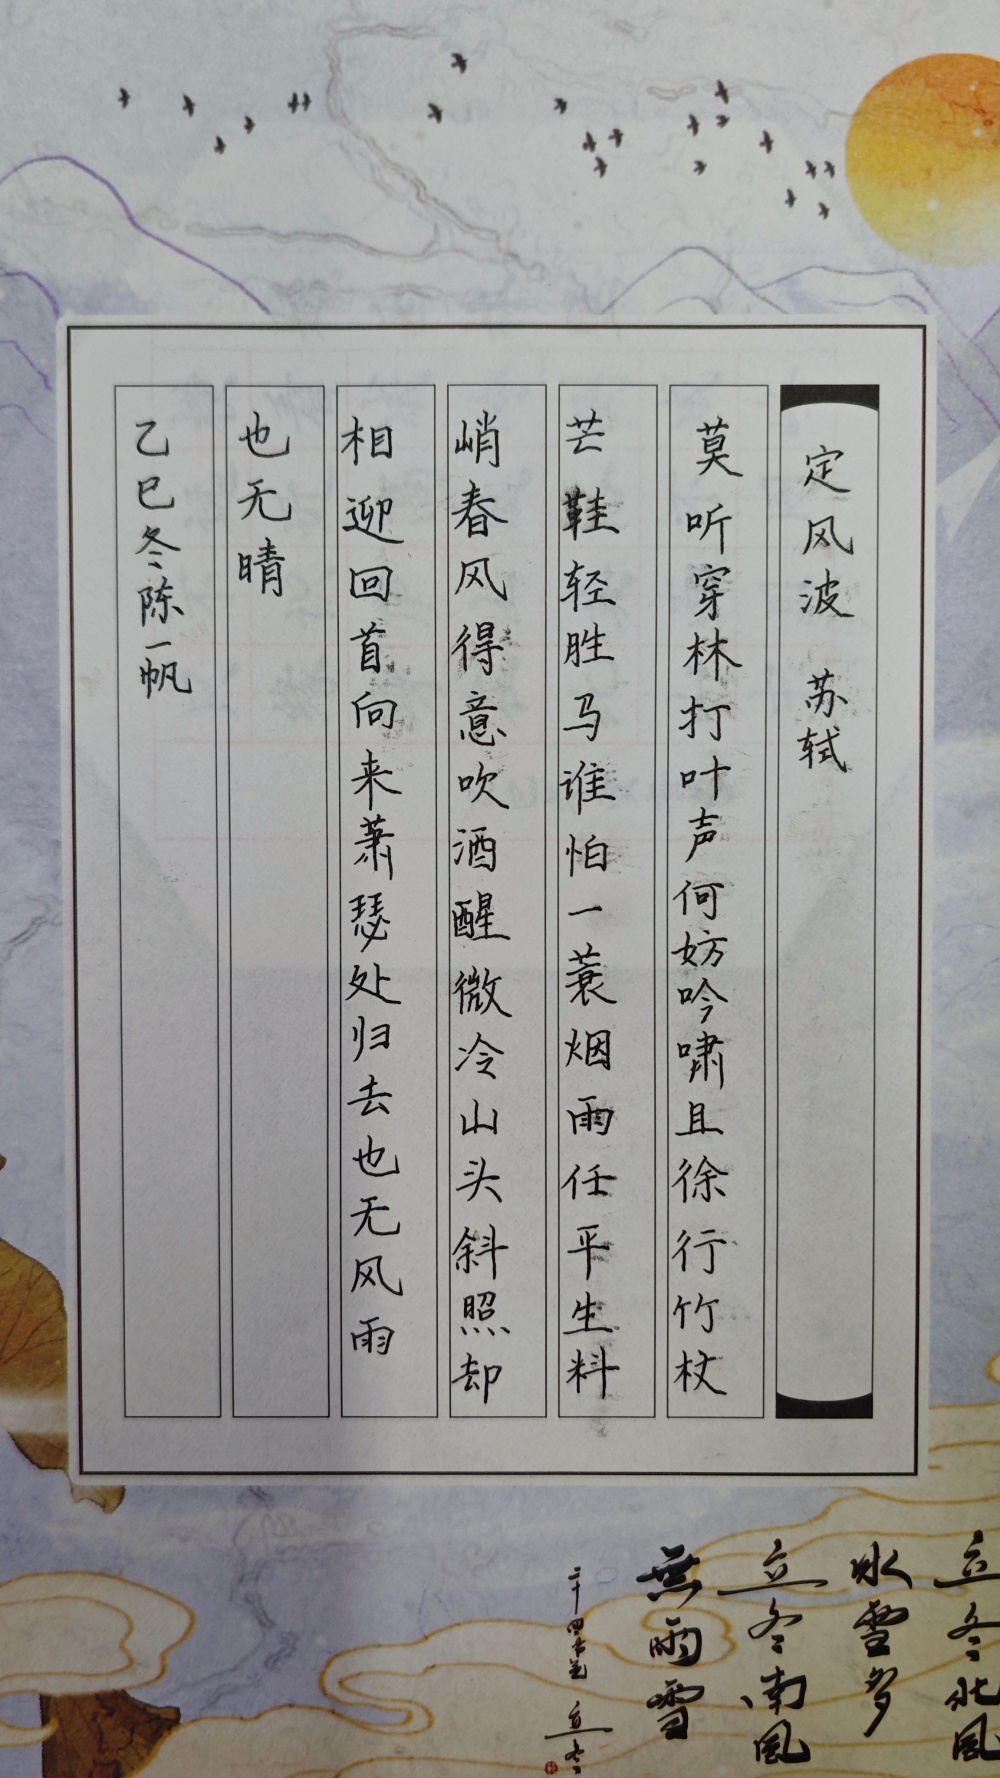 定风波 苏轼
莫听穿林打叶声何妨吟啸且徐行竹杖
芒鞋轻胜马谁怕一蓑烟雨任平生料
峭春风得意吹酒醒微冷山头斜照却
相迎回首向来萧瑟处归去也无风雨
也无晴
乙巳冬陈一帆
立冬北風
冰雪多
立冬南風
無雨雪
二十四节气 立冬